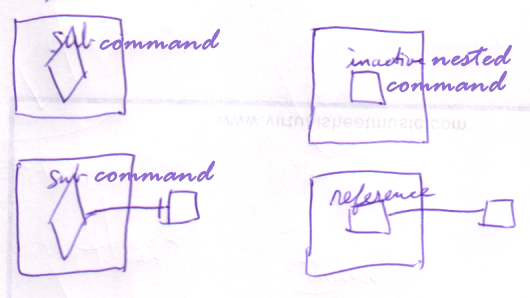 sub command
inactive nested
command
www.virtualsheetmusic.com
sub command
reference